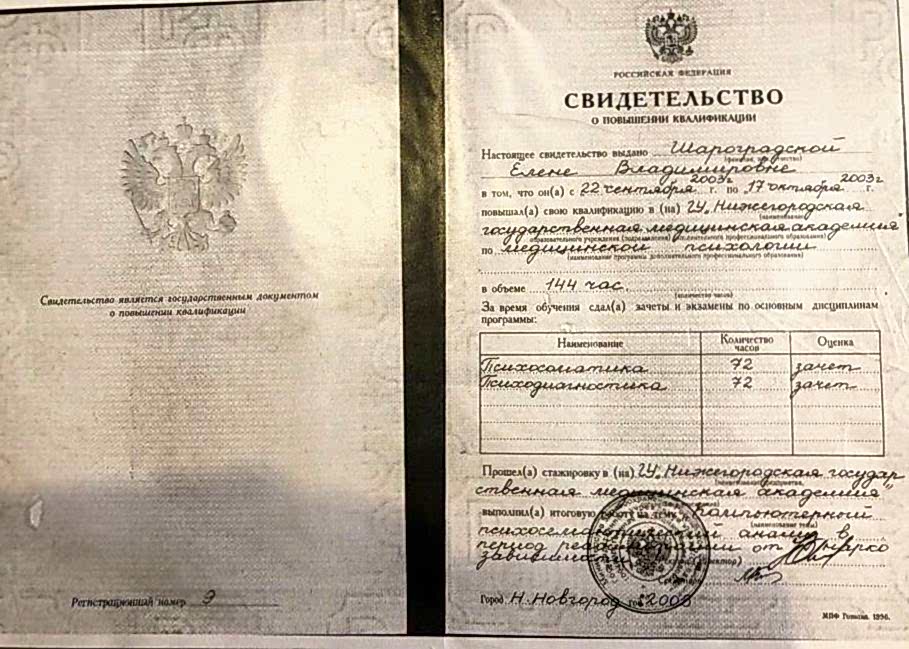 Свидетельство является государственным документом
о повышении квалификации
Регистрационный номер Э
РОССИЙСКАЯ ФЕДЕРАЦИЯ
СВИДЕТЕЛЬСТВО
О ПОВЫШЕНИИ КВАЛИФИКАЦИИ
Настоящее свидетельство выдано Шароградской
(фамилия, имя, отчество)
Елене Владимировне
в том, что он(а) с 22 сентября 2003г г. по 17 октября 2003г г.
повышал(а) свою квалификацию в (на) ГУ „Нижегородская
(наименование)
государственная медицинская академия"
образовательного учреждения (подразделения) дополнительного профессионального образования)
по медицинской психологии
(наименование программы дополнительного профессионального образования)
в объеме 144 час.
(количество часов)
За время обучения сдал(а) зачеты и экзамены по основным дисциплинам
программы:
Наименование Количество часов Оценка
Психосоматика 72 зачет
Психодиагностика 72 зачет
Прошел(а) стажировку в (на) ГУ „Нижегородская государ
(наименование предприятия,
ственная медицинская академия"
выполнил(а) итоговую работу на тему Компьютерный
(наименование темы)
психосемантический анализ в
период от нарко
зависимости
Город Н.Новгород год 2003
МПФ Гознака. 1996.